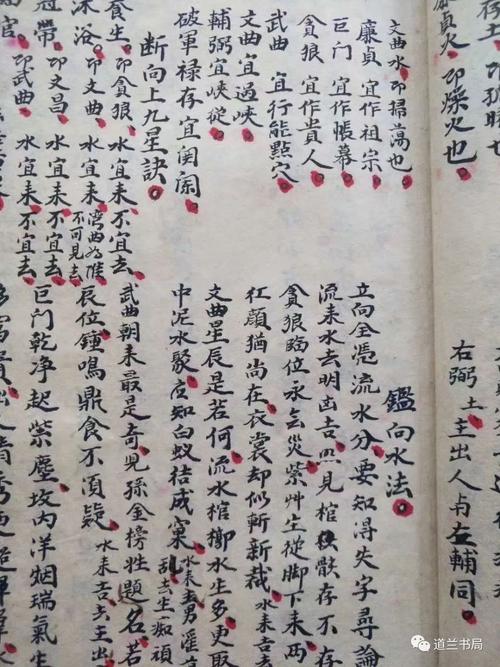 廉貞火、即燥火也
右弼土主出人与左輔同
文曲水、即掃蕩也
廉貞 宜作祖宗
巨门 宜作帳幕
貪狼 宜作貴人
武曲 宜行龍點穴
文曲 宜過峡
輔弼宜峡從
破軍禄存宜関闹
断向上九星訣
養生、即貪狼、水宜耒、不宜去
沐浴、即文曲、水宜耒、湾曲為准不可見去
冠帶、即文昌、水宜耒不宜去
即武曲、水宜耒不宜去
鑑向水法
立向全凴流水分、要知得失字尋論
流耒水去明凶吉、照見棺骸散存不存
貪狼臨位永无災、紫艸生從脚下耒、兩
红顔猶尚在衣裳却似斬新裁、水耒吉去
文曲星辰是若何、流水棺槨水生多更聚
中泥水聚、应知白蚁结成窠、水耒出男淫
乱去生痴頑
武曲朝耒最是奇、見孫金榜姓題名、若
辰位鍾鳴鼎食不須疑、水耒吉去主出
巨门乾净起紫塵、坟内洋烟瑞氣生
道兰书局